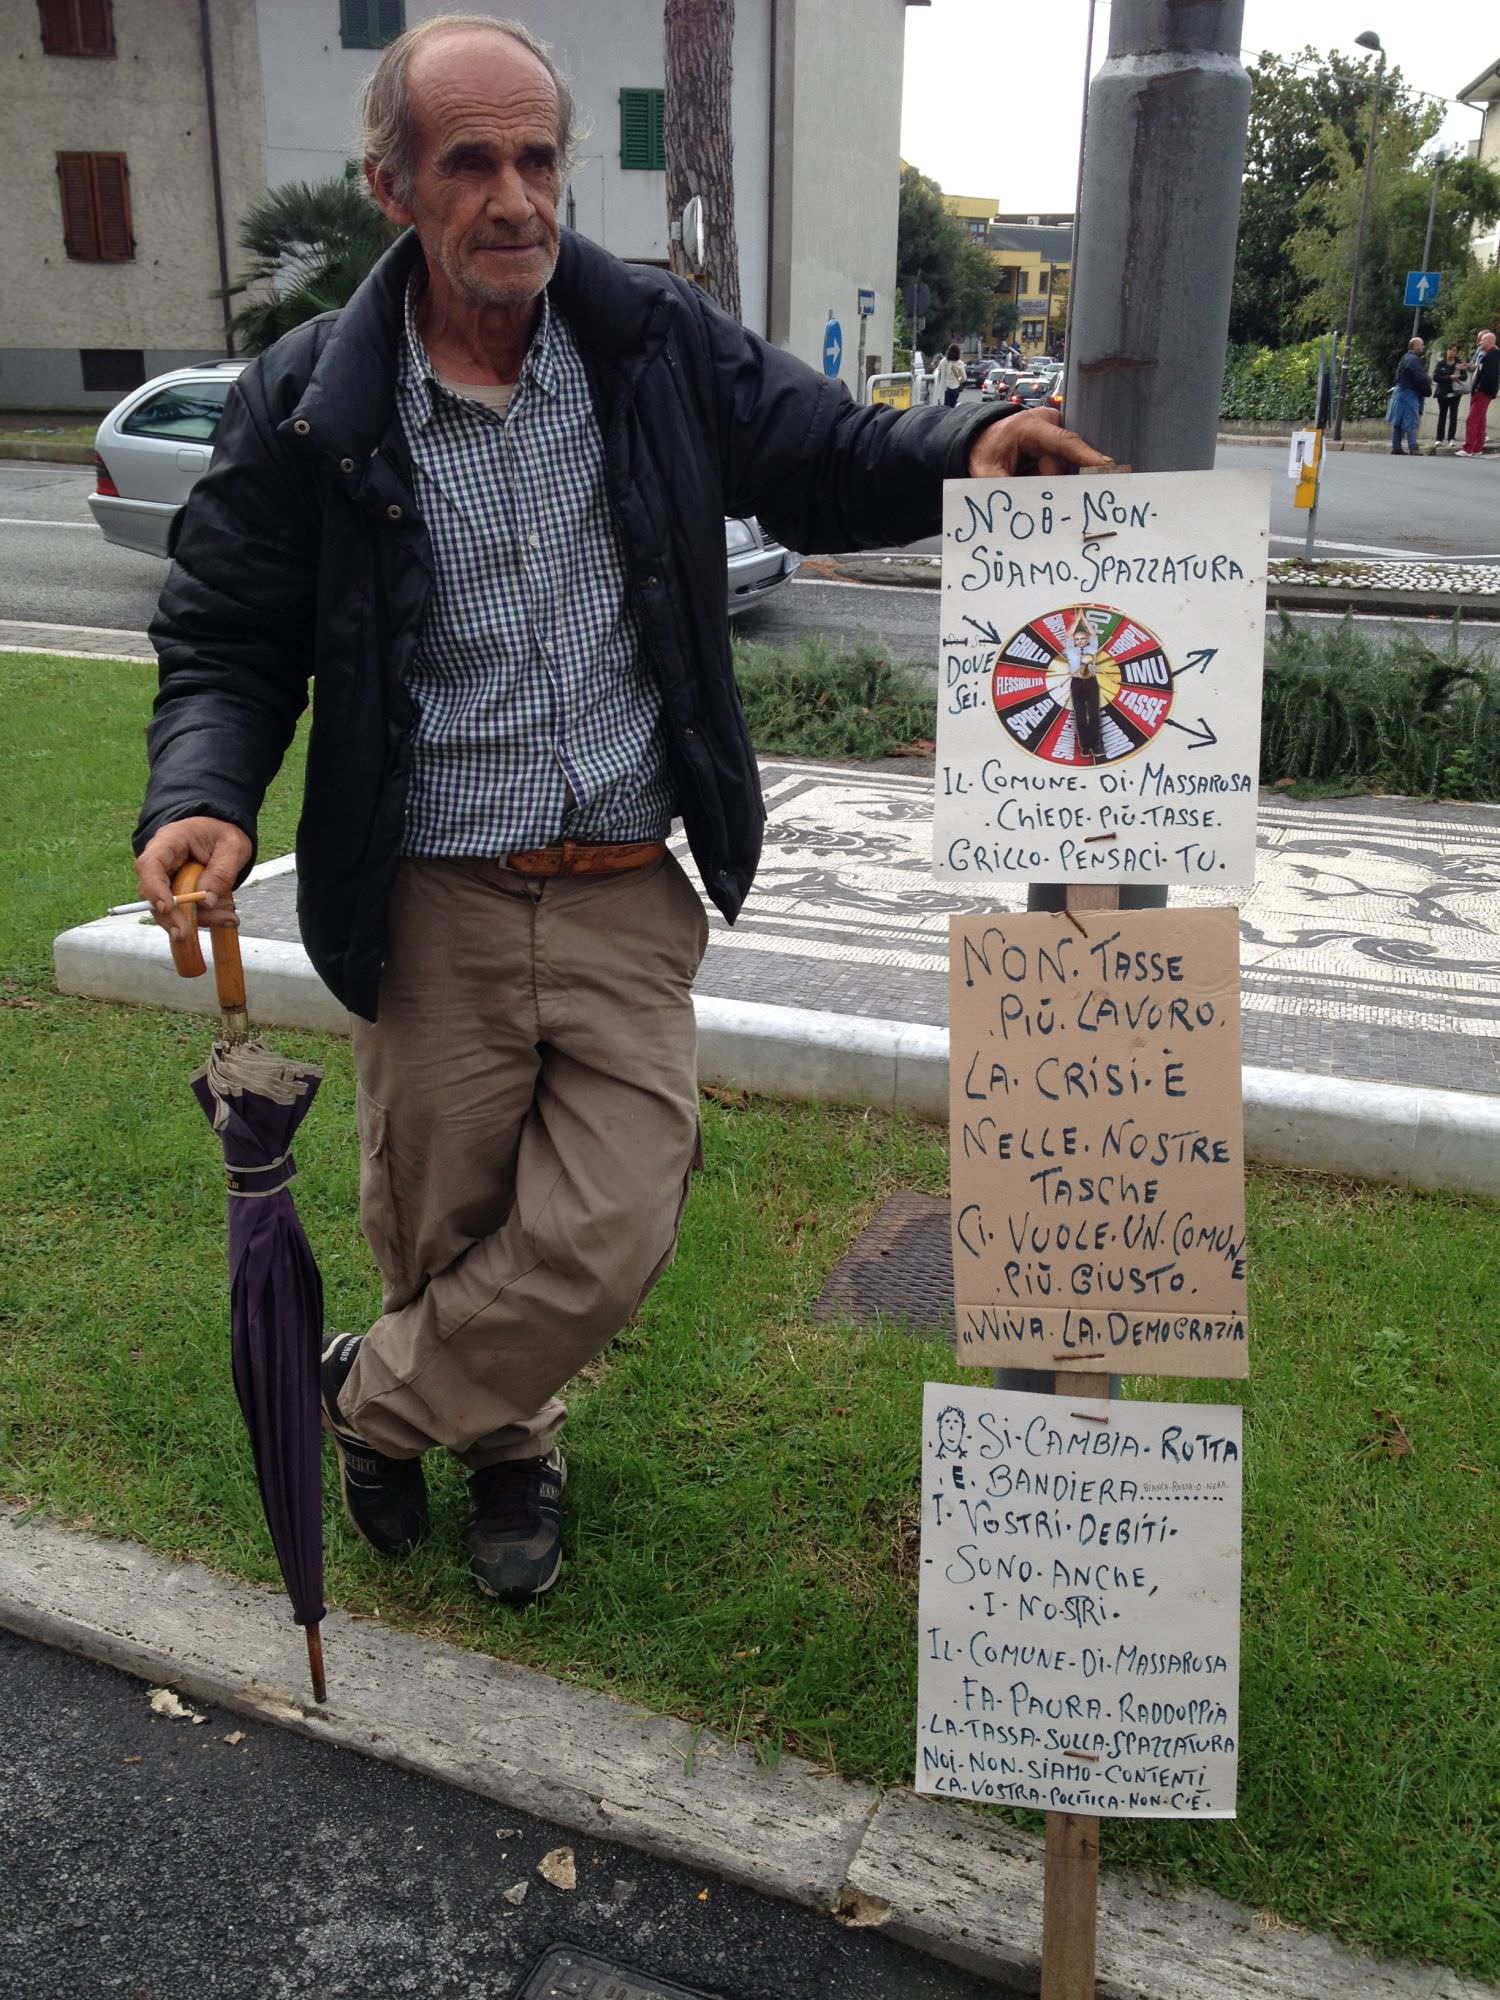 .NOI-NON-
.SIAMO.SPAZZATURA
DOVE
SEI.
GRILLO
EUROPA
IMU
TASSE
FLESSIBILITÀ
SPREAD
IL-COMUNE-DI-MASSAROSA
.CHIEDE-PIÙ-TASSE.
.GRILLO-PENSACI-TU.
NON.TASSE
.PIÙ.LAVORO.
LA.CRISI.È
NELLE.NOSTRE
TASCHE
CI.VUOLE.UN.COMUNE
.PIÙ.GIUSTO.
"WIVA.LA.DEMOGRAZIA
.SI-CAMBIA-ROTTA
.E.BANDIERA..........
BIANCA-ROSSA-O-NERA.
I-VOSTRI-DEBITI-
-SONO-ANCHE,
.I-NOSTRI.
IL-COMUNE-DI-MASSAROSA
.FA-PAURA.RADDOPPIA
.LA-TASSA-SULLA-SPAZZATURA
NOI-NON-SIAMO-CONTENTI
LA-VOSTRA-POLITICA-NON-C'È.